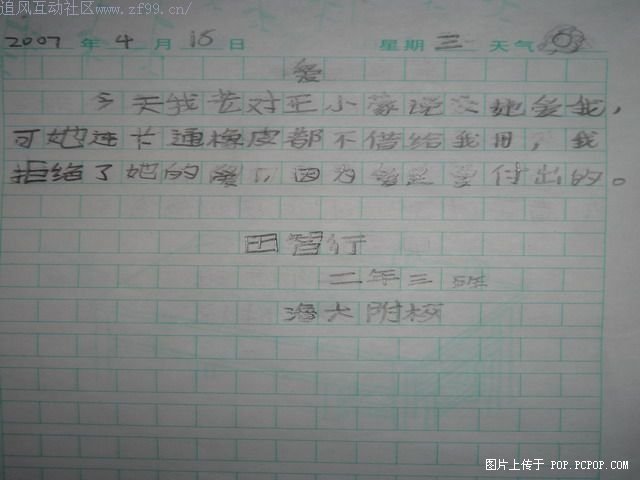 追风互动社区www.zf99.cn/
2007 年 4 月 18 日 星期 三 天气
爱
今天我 对王小蒙说 她爱我，
可她连卡通橡皮都不借给我用，我
拒绝了她的爱了，因为爱是要付出的。
田智行
二年三班
海大附校
图片上传于 POP.PCPOP.COM